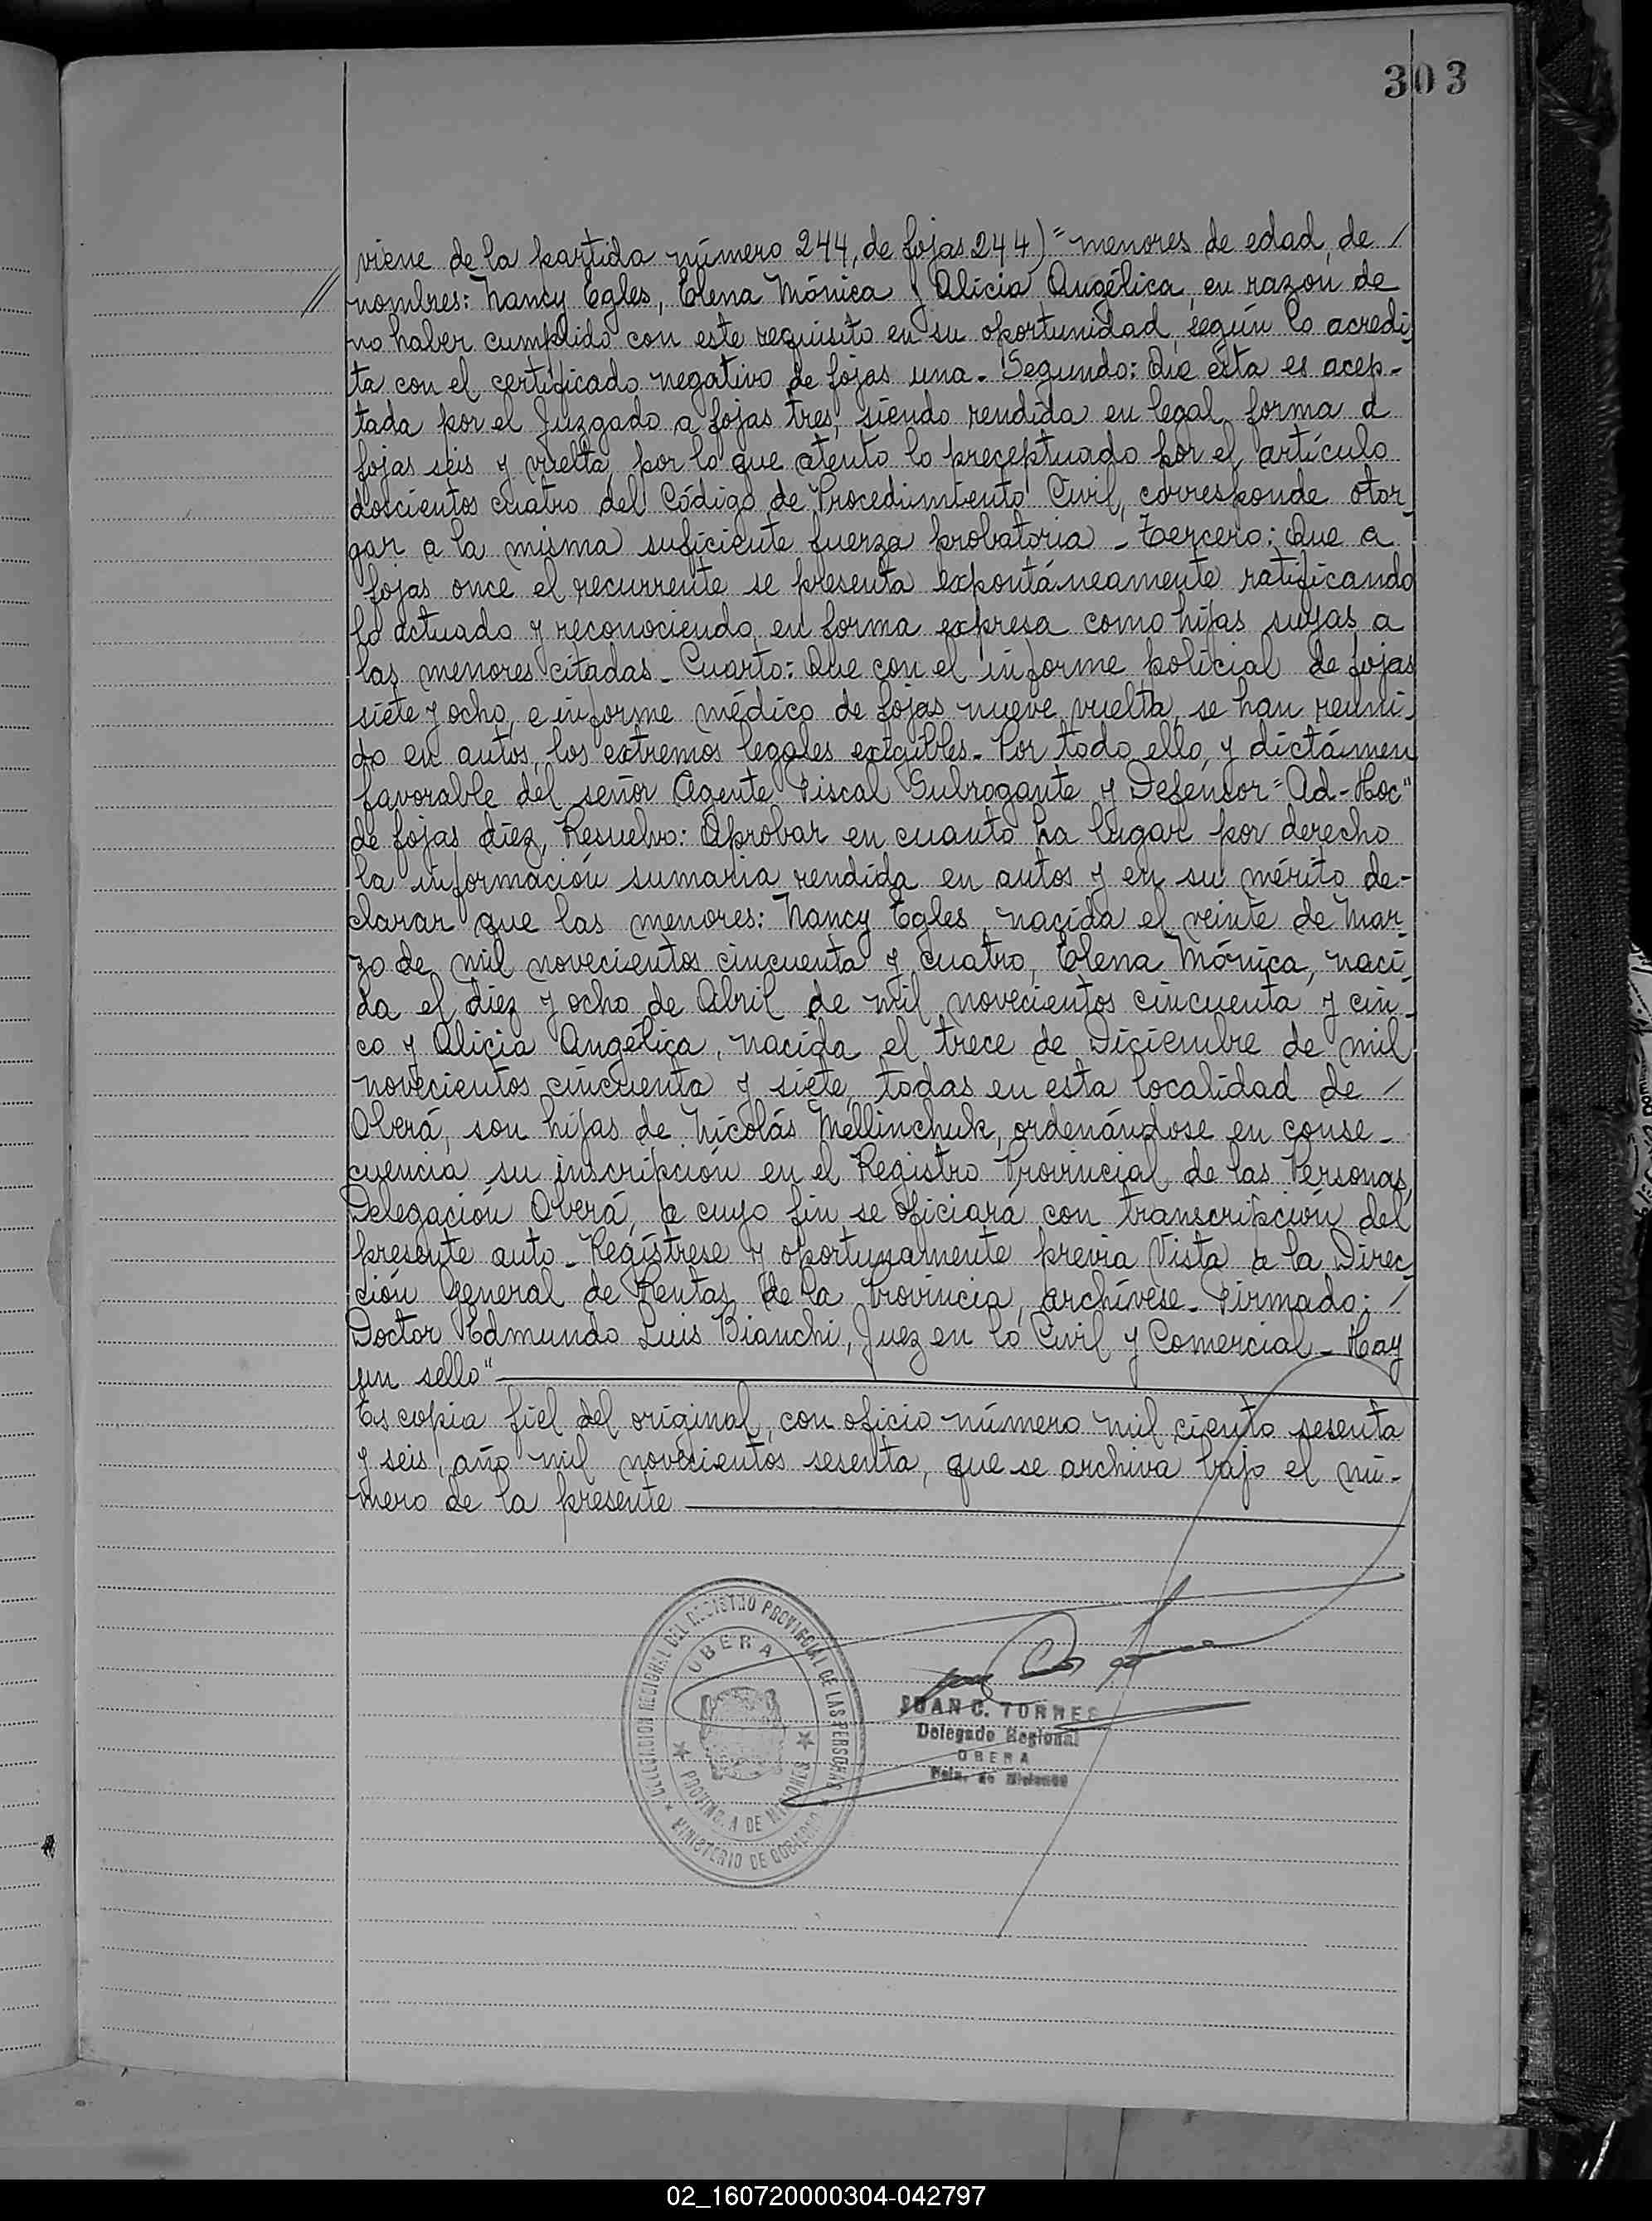 303
viene de la partida número 244, de fojas 244)= menores de edad, de /
// nombres: Nancy Egles, Elena Mónica y Alicia Angélica, en razón de
no haber cumplido con este requisito en su oportunidad, según lo acredi-
ta con el certificado negativo de fojas una.- Segundo: Que ésta es acep-
tada por el Juzgado a fojas tres, siendo rendida en legal forma a
fojas seis y vuelta, por lo que atento lo preceptuado por el artículo
doscientos cuatro del Código de Procedimiento Civil, corresponde otor-
gar a la misma suficiente fuerza probatoria - Tercero: Que a
fojas once el recurrente se presenta expontáneamente ratificando
lo actuado y reconociendo en forma expresa como hijas suyas a
las menores citadas - Cuarto: Que con el informe policial de fojas
siete y ocho, e informe médico de fojas nueve vuelta, se han reuni-
do en autos, los extremos legales exigibles - Por todo ello, y dictámen
favorable del señor Agente Fiscal Subrogante y Defensor "Ad-Hoc"
de fojas diez, Resuelvo: Aprobar en cuanto ha lugar por derecho
la información sumaria rendida en autos y en su mérito de-
clarar que las menores: Nancy Egles, nacida el veinte de Mar-
zo de mil novecientos cincuenta y cuatro, Elena Mónica, naci-
da el diez y ocho de Abril de mil novecientos cincuenta y cin-
co y Alicia Angélica, nacida el trece de Diciembre de mil
novecientos cincuenta y siete, todas en esta localidad de /
Oberá, son hijas de Nicolás Mellinchuk, ordenándose en conse-
cuencia su inscripción en el Registro Provincial de las Personas,
Delegación Oberá, a cuyo fin se oficiará con transcripción del
presente auto - Regístrese y oportunamente previa Vista a la Direc-
ción General de Rentas de la Provincia, archívese - Firmado: /
Doctor Edmundo Luis Bianchi, Juez en lo Civil y Comercial - Hay
un sello"
Es copia fiel del original, con oficio número mil ciento sesenta
y seis, año mil novecientos sesenta, que se archiva bajo el nú-
mero de la presente
DELEGACION REGIONAL DEL REGISTRO PROVINCIAL DE LAS PERSONAS
OBERA
PROVINCIA DE MISIONES
MINISTERIO DE GOBIERNO
JUAN C. TORRES
Delegado Regional
OBERA
Pcia. de Misiones
02_160720000304-042797